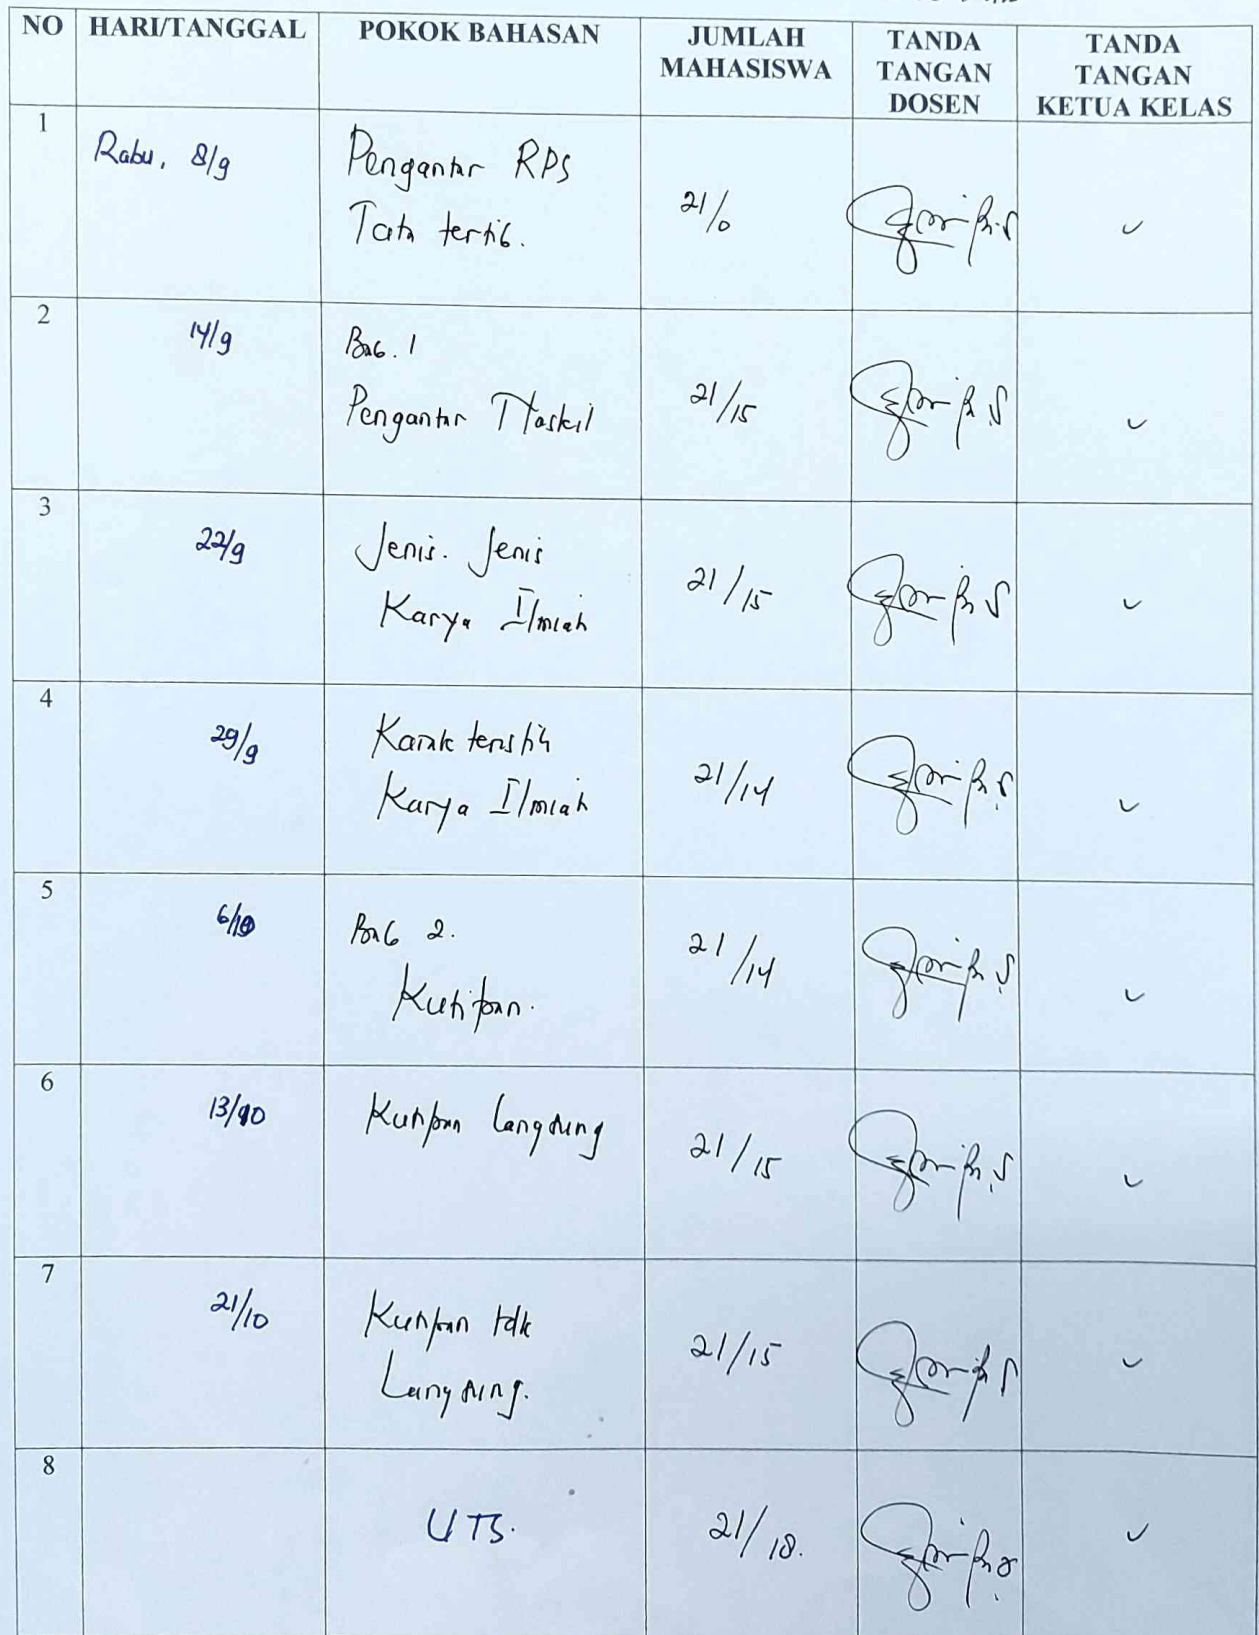 NO HARI/TANGGAL POKOK BAHASAN JUMLAH MAHASISWA TANDA TANGAN DOSEN TANDA TANGAN KETUA KELAS
1 Rabu, 8/9 Pengantar RPS 21/0
Tata tertib.
2 14/9 Bab. 1 21/15
Pengantar
3 22/9 Jenis. Jenis 21/15
Karya Ilmiah
4 29/9 Karakteristik 21/14
Karya Ilmiah
5 6/10 Bab 2. 21/14
Kutipan.
6 13/10 Kutipan langsung 21/15
7 21/10 Kutipan tdk 21/15
Langsung.
8 UTS. 21/18.